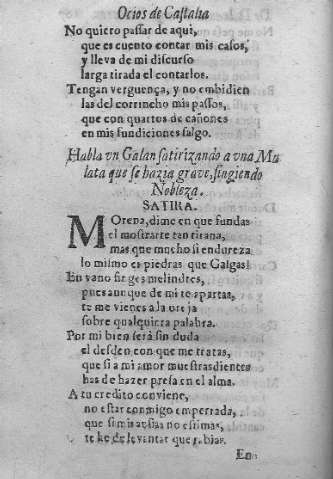 Ocios de Castalia
No quiero passar de aqui,
que es cuento contar mis casos,
y lleva de mi discurso
larga tirada el contarlos.
Tengan verguença, y no embidien
las del corrincho mis passos,
que con quartos de cañones
en mis fundiciones salgo.
Habla vn Galan satirizando a vna Mu
lata que se hazia grave, fingiendo
Nobleza.
SATIRA.
MOrena, dime en que fundas
el mostrarte tan tirana,
mas que mucho si endureza
lo mismo es piedras que Galgas!
En vano finges melindres,
pues aunque de mi te apartas,
te me vienes a la oreja
sobre qualquiera palabra.
Por mi bien será sin duda
el desden con que me tratas,
que si a mi amor muestras dientes
has de hazer presa en el alma.
A tu credito conviene,
no estar conmigo emperrada,
que si mis ansias no estimas,
te he de levantar que rabias.
En